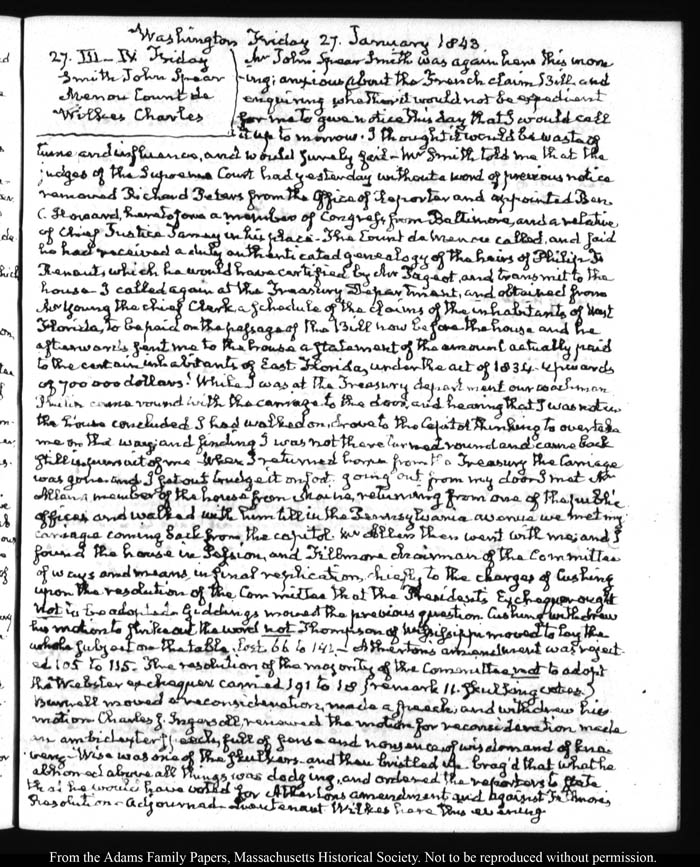 Washington Friday 27. January 1843.
27. III–IV. Friday
Smith John Spear
Menou Count de
Wilkes Charles
Mr John Spear Smith was again here this morn
-ing; anxious about the French claim Bill and
enquiring whether it would not be expedient
for me to give notice this day that I would call
it up to morrow. I thought it would be waste of
time and influence, and would surely fail – Mr Smith told me that the
judges of the Supreme Court had yesterday without a word of previous notice
removed Richard Peters from the Office of Reporter and appointed Ben.
C. Howard, heretofore a member of Congress from Baltimore, and a relative
of Chief Justice Taney in his place – The Count de Menou called, and said
he had received a duly authenticated genealogy of the heirs of Philip F.
Renaut, which he would have certified by Mr Pageot, and transmit to the
house – I called again at the Treasury Department, and obtained from
Mr Young the chief Clerk a schedule of the claims of the inhabitants of West
Florida, to be paid on the passage of the Bill now before the house and he
afterwards sent me to the house a statement of the amount actually paid
to the certain inhabitants of East Florida, under the act of 1834 – upwards
of 700 000 dollars! While I was at the Treasury department our coachman
came round with the carriage to the door, and hearing that I was not in
the house concluded I had walked on, drove to the Capitol thinking to overtake
me on the way; and finding I was not there turned round and came back
still in pursuit of me – When I returned home from the Treasury the Carriage
was gone and I set out to trudge it on foot. going out from my door I met Mr
Allen a member of the house from Maine, returning from one of the public
offices and walked with him till in the Pennsylvania avenue we met my
carriage coming back from the capitol. Mr Allen then went with me; and I
found the house in Session, and Fillmore chairman of the Committee
of ways and means, in final replication, chiefly to the charges of Cushing
upon the resolution of the Committee that the Presidents Exchequer ought
not to be adopted – Giddings moved the previous question Cushing withdrew
his motion to strike out the word not Thompson of Mississippi moved to lay the
whole subject on the table. Lost 66 to 141 – Athertons amendment was reject
-ed 105 to 115. The resolution of the majority of the Committee not to adopt
the Webster exchequer carried 191 to 18 (remark 11. skulking votes.)
Burnell moved a reconsideration, made a speech, and withdrew his
motion Charles J. Ingersoll, renewed the motion for reconsideration made
an ambidexter speech, full of sense and nonsense, of wisdom and of kna
-very – Wise was one of the skulkers – and then bristled up – brag'd that what he
abhorred above all things was dodging, and ordered the reporters to state
that he would have voted for Athertons amendment and against Fillmore's
Resolution – Adjourned – Lieutenant Wilkes here this evening
From the Adams Family Papers, Massachusetts Historical Society. Not to be reproduced without permission.